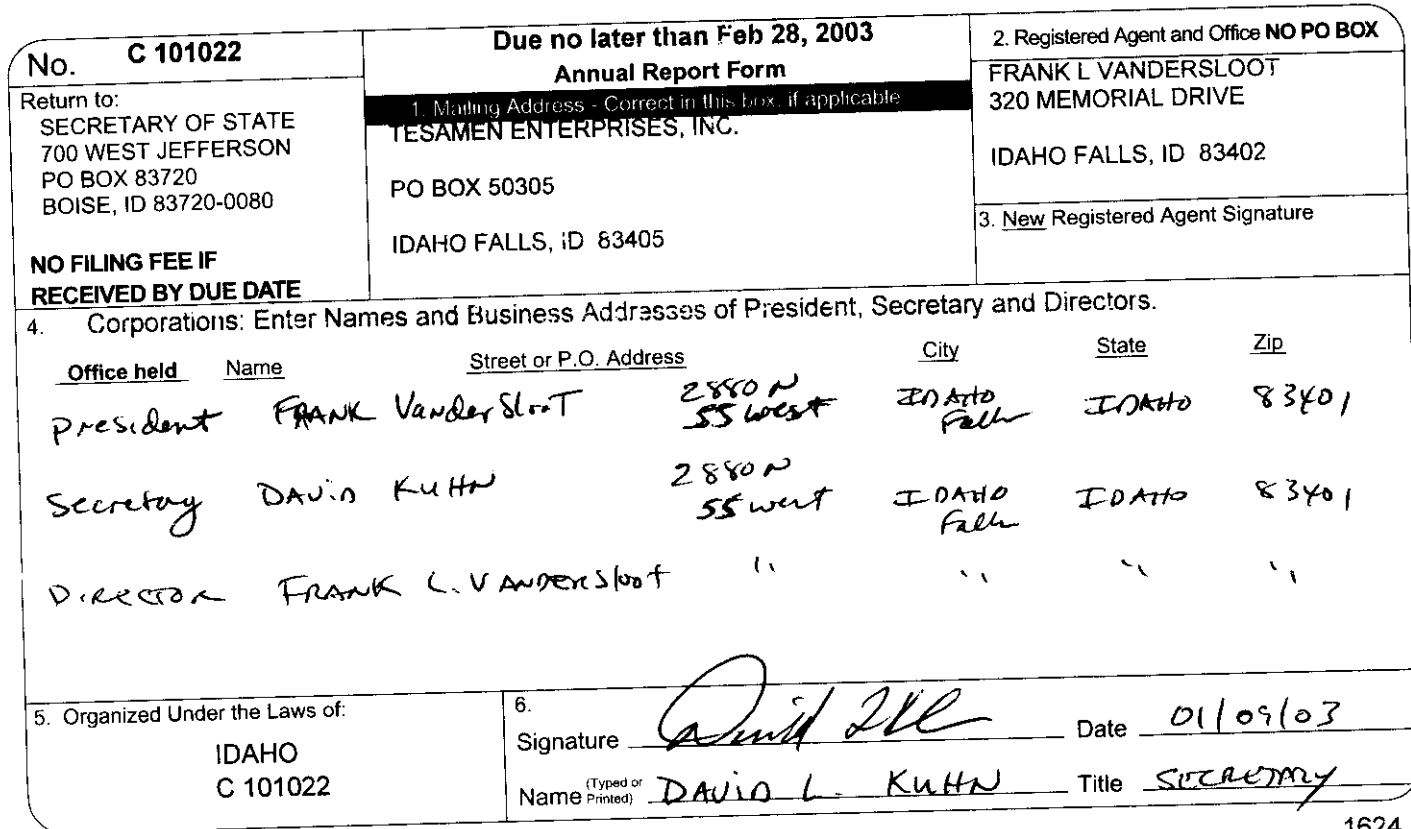 No. C 101022
Return to:
SECRETARY OF STATE
700 WEST JEFFERSON
PO BOX 83720
BOISE, ID 83720-0080
NO FILING FEE IF
RECEIVED BY DUE DATE
Due no later than Feb 28, 2003
Annual Report Form
1. Mailing Address - Correct in this box, if applicable
TESAMEN ENTERPRISES, INC.
PO BOX 50305
IDAHO FALLS, ID 83405
2. Registered Agent and Office NO PO BOX
FRANK L VANDERSLOOT
320 MEMORIAL DRIVE
IDAHO FALLS, ID 83402
3. New Registered Agent Signature
4. Corporations: Enter Names and Business Addresses of President, Secretary and Directors.
Office held Name Street or P.O. Address City State Zip
President FRANK VanderSlooT 2880 N IDAHO IDAHO 83401
55 west Falls
Secretary DAVID KUHN 2880 N IDAHO IDAHO 83401
55 west Falls
DIRECTOR FRANK L. VANDERSloot " " " "
5. Organized Under the Laws of:
IDAHO
C 101022
6.
Signature Date 01/09/03
Name (Typed or Printed) DAVID L. KUHN Title SECRETARY
1624